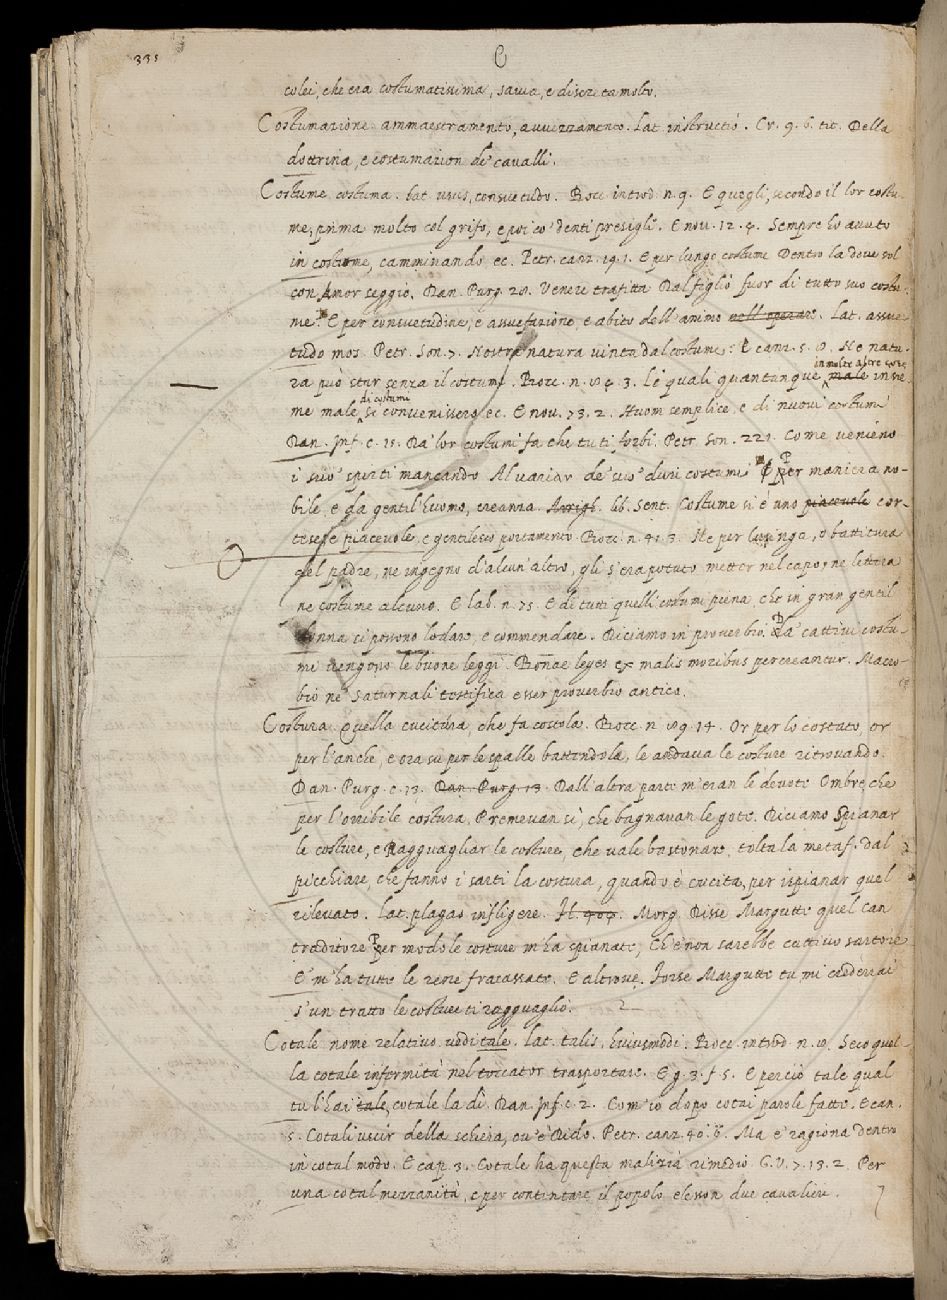 331
C
colei, che era costumatissima, savia, e discreta molto.
Costumazione. ammaestramento, avvezzamento. Lat. instructio. Cr. 9. 6. tit. Della
dottrina, e costumazion de' cavalli.
Costume costuma. Lat. usus, consuetudo. Bocc. introd. n. 9. E quegli, secondo il lor costu-
me, prima molto col grifo, e poi co' denti presigli. E nov. 12. 4. Sempre ho avuto
in costume, camminando ec. Petr. canz. 19. 1. E per lungo costume Dentro la dove sol
con Amor seggio. Dan. Purg. 28. Venere trafitta Dal figlio fuor di tutto suo costu-
me. E per consuetudine, e assuefazione, e abito dell'animo nell'operare. Lat. assue-
tudo mos. Petr. Son. 7. Nostra natura vinta dal costume: E canz. 5. 8. Ne natu-
in molte altre cose
ra può star senza il costume. Bocc. n. 84. 3. Le quali quantunque male insie-
di costumi
me male si convenissero ec. E nov. 73. 2. Huom semplice, e di nuovi costumi
Dan. Inf. c. 15. Da' lor costumi fa che tu ti forbi. Petr. Son. 221. Come venieno
i suo' spirti mancando Al variar de' suo' duri costumi P per maniera no-
bile, e da gentil huomo, creanza. Arrigh. lib. Sent. Costume si è uno piacevole cor-
tese, e piacevole, e gentilesco portamento. Bocc. n. 41. 3. Ne per lusinga, o battitura
del padre, ne ingegno d'alcun altro, gli s'era potuto metter nel capo, ne lettera
ne costume alcuno. E lab. n. 75. E di tutti quelli costumi piena, che in gran gentil
donna si possono lodare, e commendare. Diciamo in proverbio. Da' cattivi costu-
mi vengono le buone leggi. Bonae leges ex malis moribus procreantur. Macro-
bio ne' Saturnali testifica esser proverbio antico.
Costura. Quella cucitura, che fa costola. Bocc. n. 89. 14. Or per lo costato, or
per l'anche, e ora su per le spalle battendola, le andava le costure ritrovando.
Dan. Purg. c. 13. Dan. Purg. 13. Dall'altra parte m'eran le devote Ombre, che
per l'orribile costura, Premevan sì, che bagnavan le gote. Diciamo Spianar
le costure, e Ragguagliar le costure, che vale bastonare, tolta la metaf. dal
picchiare, che fanno i sarti la costura, quando è cucita, per ispianar quel
rilevato. Lat. plagas infligere. Morg. Disse Margutte quel can
traditore Per modo le costure m'ha spianate, Ch'e' non sarebbe cattivo sartore
E m'ha tutte le rene fracassate. E altrove. Forse Margutte tu mi crederrai
s'un tratto le costure ti ragguaglio.
Cotale nome relativo. vedi tale. Lat. talis, huiusmodi. Bocc. introd. n. 8. Seco quel-
la cotale infermità nel toccator trasportare. E g. 3. f. 5. E perciò tale qual
tu l'hai tale, cotale la dì. Dan. Inf. c. 2. Com' io dopo cotai parole fatte. E can.
5. Cotali uscir della schiera, ov'è Dido. Petr. canz. 40. 4. Ma e' ragiona dentro
in cotal modo. E cap. 3. Cotale ha questa malizia rimedio. G. V. 7. 13. 2. Per
una cotal mezzanità, e per contentare il popolo, elesson due cavalieri.